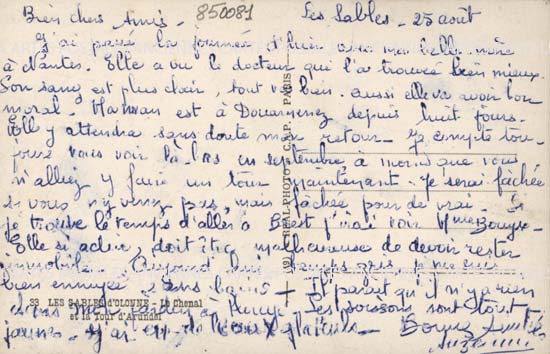 Bien chers Amis. 850081 Les Sables. 25 août
J'ai passé la journée d'hier avec ma belle-mère
à Nantes. Elle a vu le docteur que l'a trouvée bien mieux.
Son sang est plus clair, tout va bien. aussi elle va avoir bon
moral. Maman est à Douarnenez depuis huit jours.
Elle y attendra sans doute mon retour. J'y compte tou-
jours vous voir là-bas en septembre à moins que vous
n'alliez y faire un tour maintenant. Je serai fâchée
si vous n'y venez pas, mais fâchée pour de vrai. Si
je trouve le temps d'aller à Brest j'irai voir Mme
Elle si active, doit être malheureuse de devoir rester
immobile. Aujourd'hui temps gris je me suis
bien ennuyée sans bains. Il paraît qu'il n'y a rien
dans mon jardin à . Les sont tout
jaunes.
Bonnes Amitiés
(19) REAL-PHOTO - C.A.P. - PARIS
33 LES SABLES d'OLONNE - Le Chenal
et la Tour d'Arundel